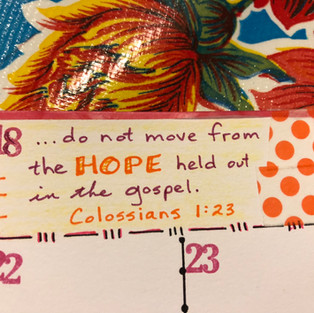 18
...do not move from
the HOPE held out
in the gospel.
Colossians 1:23
22
23